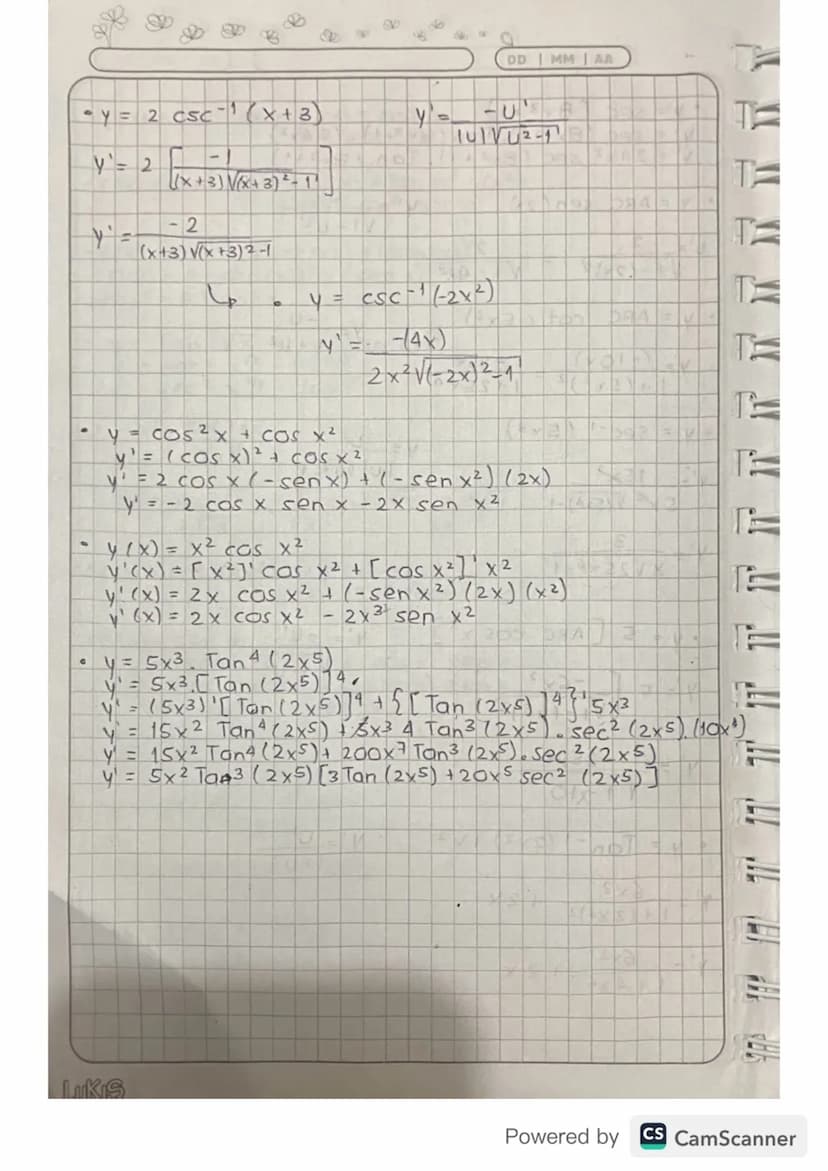 DD | MM | AA
• y = 2 csc⁻¹ (x+3) y' = -U' / |U|√U²-1
y' = 2 [-1 / (x+3)√(x+3)²-1]
y' = -2 / (x+3)√(x+3)²-1
↳ • y = csc⁻¹ (-2x²)
y' = -(4x) / 2x²√(-2x)²-1
• y = cos²x + cos x²
y' = (cos x)² + cos x²
y' = 2 cos x (-senx) + (-sen x²) (2x)
y' = -2 cos x sen x - 2x sen x²
• y(x) = x² cos x²
y'(x) = [x²]' cos x² + [cos x²]' x²
y'(x) = 2x cos x² + (-sen x²) (2x) (x²)
y'(x) = 2x cos x² - 2x³ sen x²
• y = 5x³. Tan⁴ (2x⁵)
y' = 5x³.[Tan (2x⁵)]⁴.
y' = (5x³)'[Tan (2x⁵)]⁴ + {[Tan (2x⁵)]⁴}' 5x³
y' = 15x² Tan⁴(2x⁵) + 5x³ 4 Tan³(2x⁵). sec²(2x⁵).(10x⁴)
y' = 15x² Tan⁴(2x⁵) + 200x⁷ Tan³(2x⁵). sec²(2x⁵)
y' = 5x² Tan³(2x⁵) [3Tan (2x⁵) + 20x⁵ sec² (2x⁵)]
LUKIS
Powered by CS CamScanner